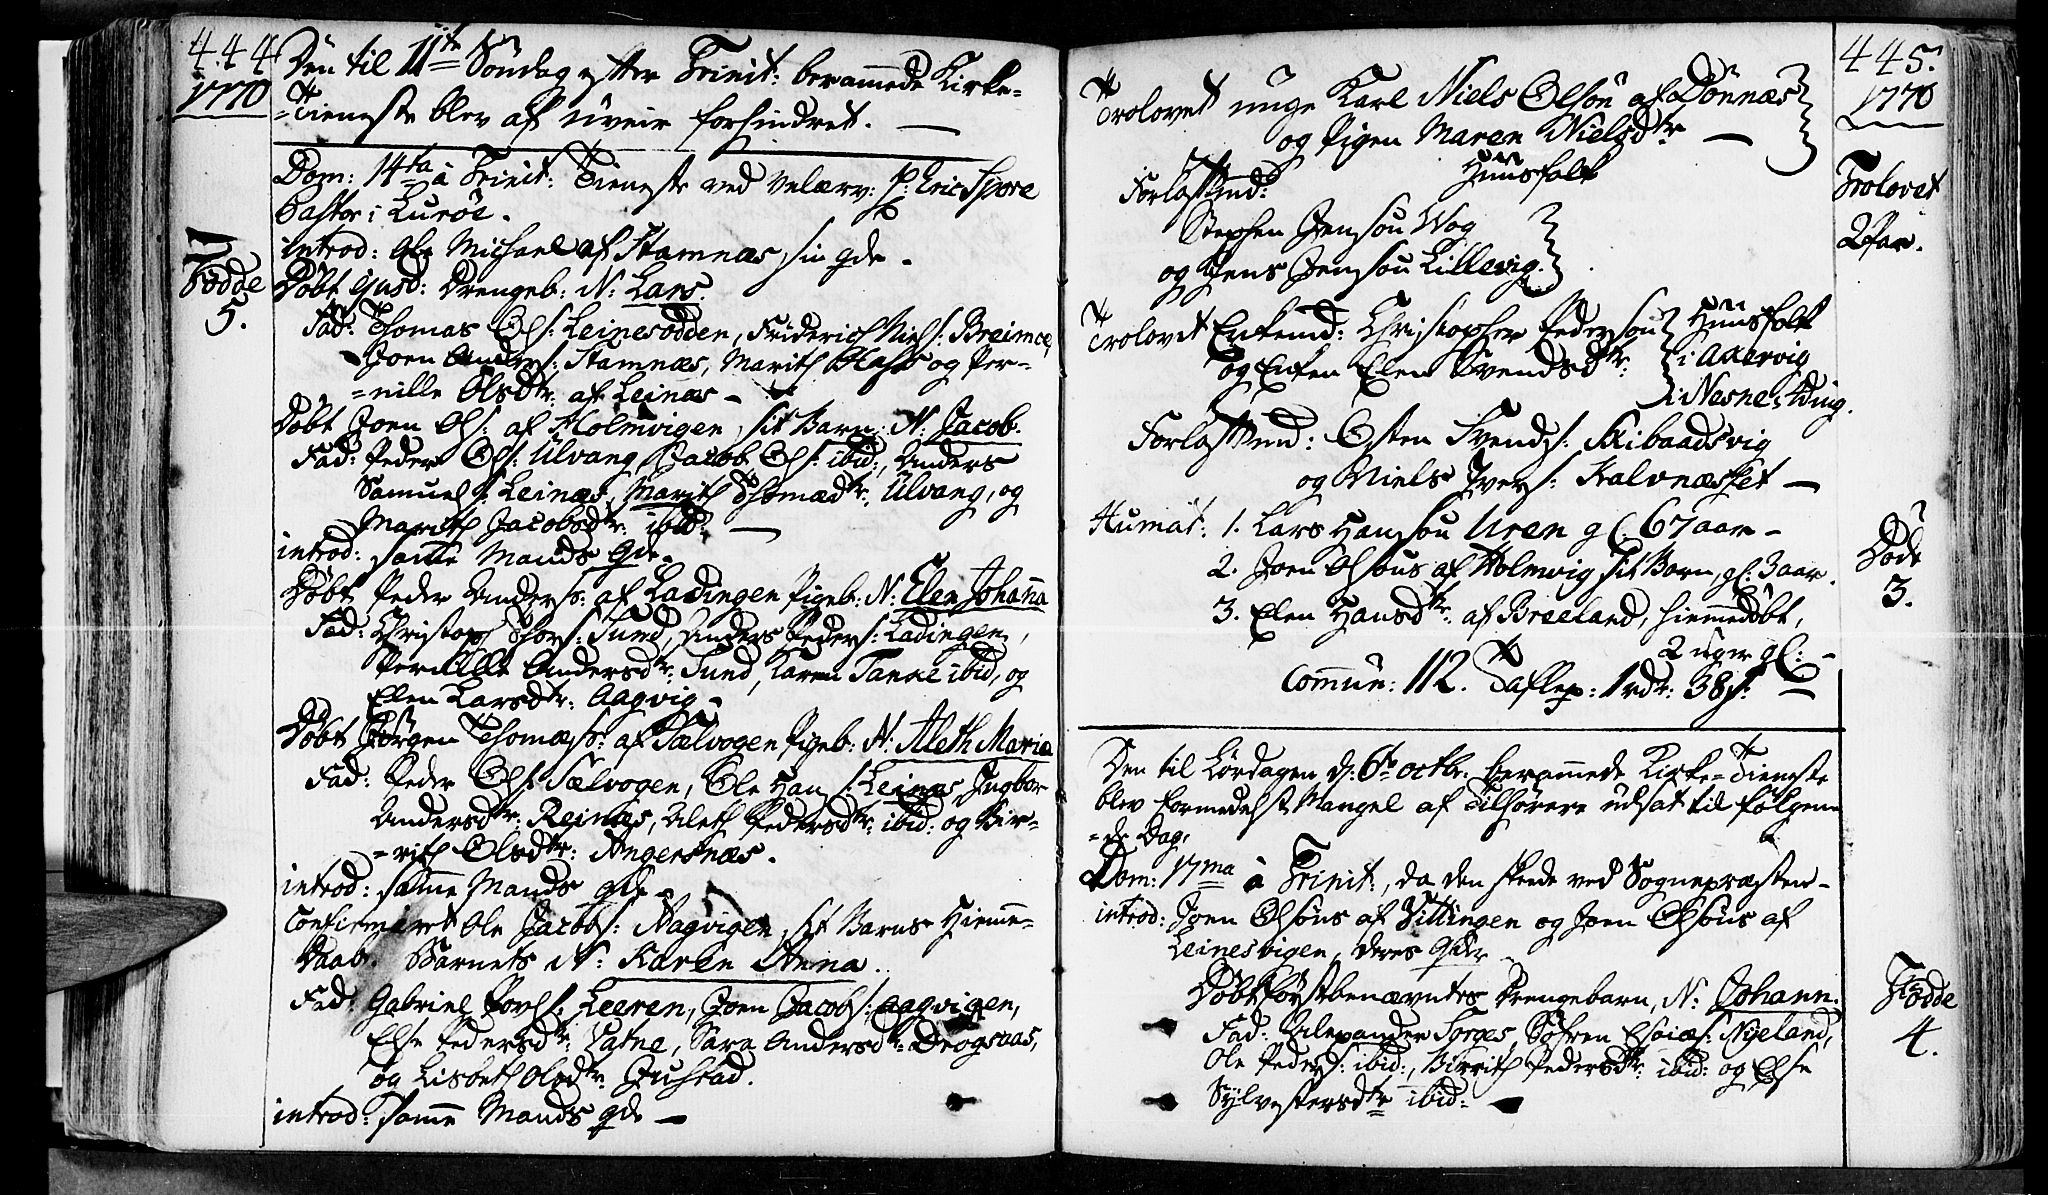 444
1770
Den til 11te Søndag efter Trinit: berammede Kirke=
=Tieneste blev af Uveir forhindret. —
Dom: 14ta à Trinit: Tieneste ved velærv: Hr: Eric Spore
Pastor i Lurøe.
introd: Ole Michael af Stamnæs, sin qde.
Fødde
5.
Døbt ejusd: Drengeb: N: Lars.
Fad: Thomas Ols: Leinesodden, Friderich Niels: Breimoe,
Joen Anders: Stamnæs, Marith Hass og Per=
=nille Olsdtr: af Leinæs —
Døbt Joen Ols: af Holmvigen, sit Barn: N: Jacob.
Fad: Peder Ols: Ulvang, Jacob Ols: ibid:, Anders
Samuels: Leinæs, Marith Thomædtr: Ulvang, og
Marith Jacobsdtr: ibid: —
introd: samme Mands qde.
Døbt Peder Anders: af Ladingen Pigeb: N: Elen Johanna
Fad: Christoph Thors: Sund, Anders Peders: Ladingen,
Pernille Andersdtr: Sund, Karen Tanke ibid, og
Elen Larsdtr: Aagvig —
Døbt Jørgen Thomæs: af Sælvogen Pigeb: N: Aleth Maria
Fad: Peder Ols: Sælvogen, Ole Hans: Leinæs, Ingbor
Andersdtr: Reinæs, Aleth Pedersdtr: ibid: og Bir=
=rith Olsdtr: Angersnæs.
introd: samme Mands qde —
Confirmeret Ole Jacobs: Aagvigen, sit Barns Hiemme=
Daab. Barnets N: Karen Anna.
Fad: Gabriel Povels: Leeren, Joen Jacobs: Aagvigen,
Else Pedersdtr: Vatne, Sara Andersdtr: Drogsaas,
og Lisbeth Olsdtr: Justad.
introd: samme Mands qde —
445.
1770
Trolovet unge Karl Niels Olsøn af Dønnæs
og Pigen Maren Nielsdtr —
Trolovet
2 Par.
Huusfolk
Forlovtmd:
Stephen Jensøn Wog
og Jens Jensøn Lillevig.
Trolovet Enkemd: Christopher Pedersøn
og Enken Elen Svendsdtr:
Huusfolk
i Axervig
i Nesne Tding.
Forlovtmd: Østen Svends: Skibaadsvig
og Niels Ivers: Kalvnæsset —
Humat: 1. Lars Hansøn Uren gl: 67 aar —
2. Joen Olsøns af Holmvig sit Barn, gl: 3 aar.
3. Elen Hansdtr: af Breeland, hiemmedøbt,
2 uger gl: —
Døde
3.
Commun: 112. Taflep: 1 rdr: 38 s: —
Den til Lørdagen d: 6te octbr: berammede Kirke=Tieneste
blev formedelst Mangel af Tilhørere udsat til følgen=
=de Dag,
Dom: 17ma à Trinit:, da den skeede ved Sognepræsten —
introd: Joen Olsøns af Vittingen og Joen Olsøns af
Leinesvigen, deres qder —
Døbt førstbenævntes Drengebarn, N: Johann.
Fødde
4.
Fad: Alexander Torges, Søfren Esaiæs: Nyeland,
Ole Peders: ibid:, Birrith Pedersdtr: ibid: og Else
Sylvestersdtr ibid: —